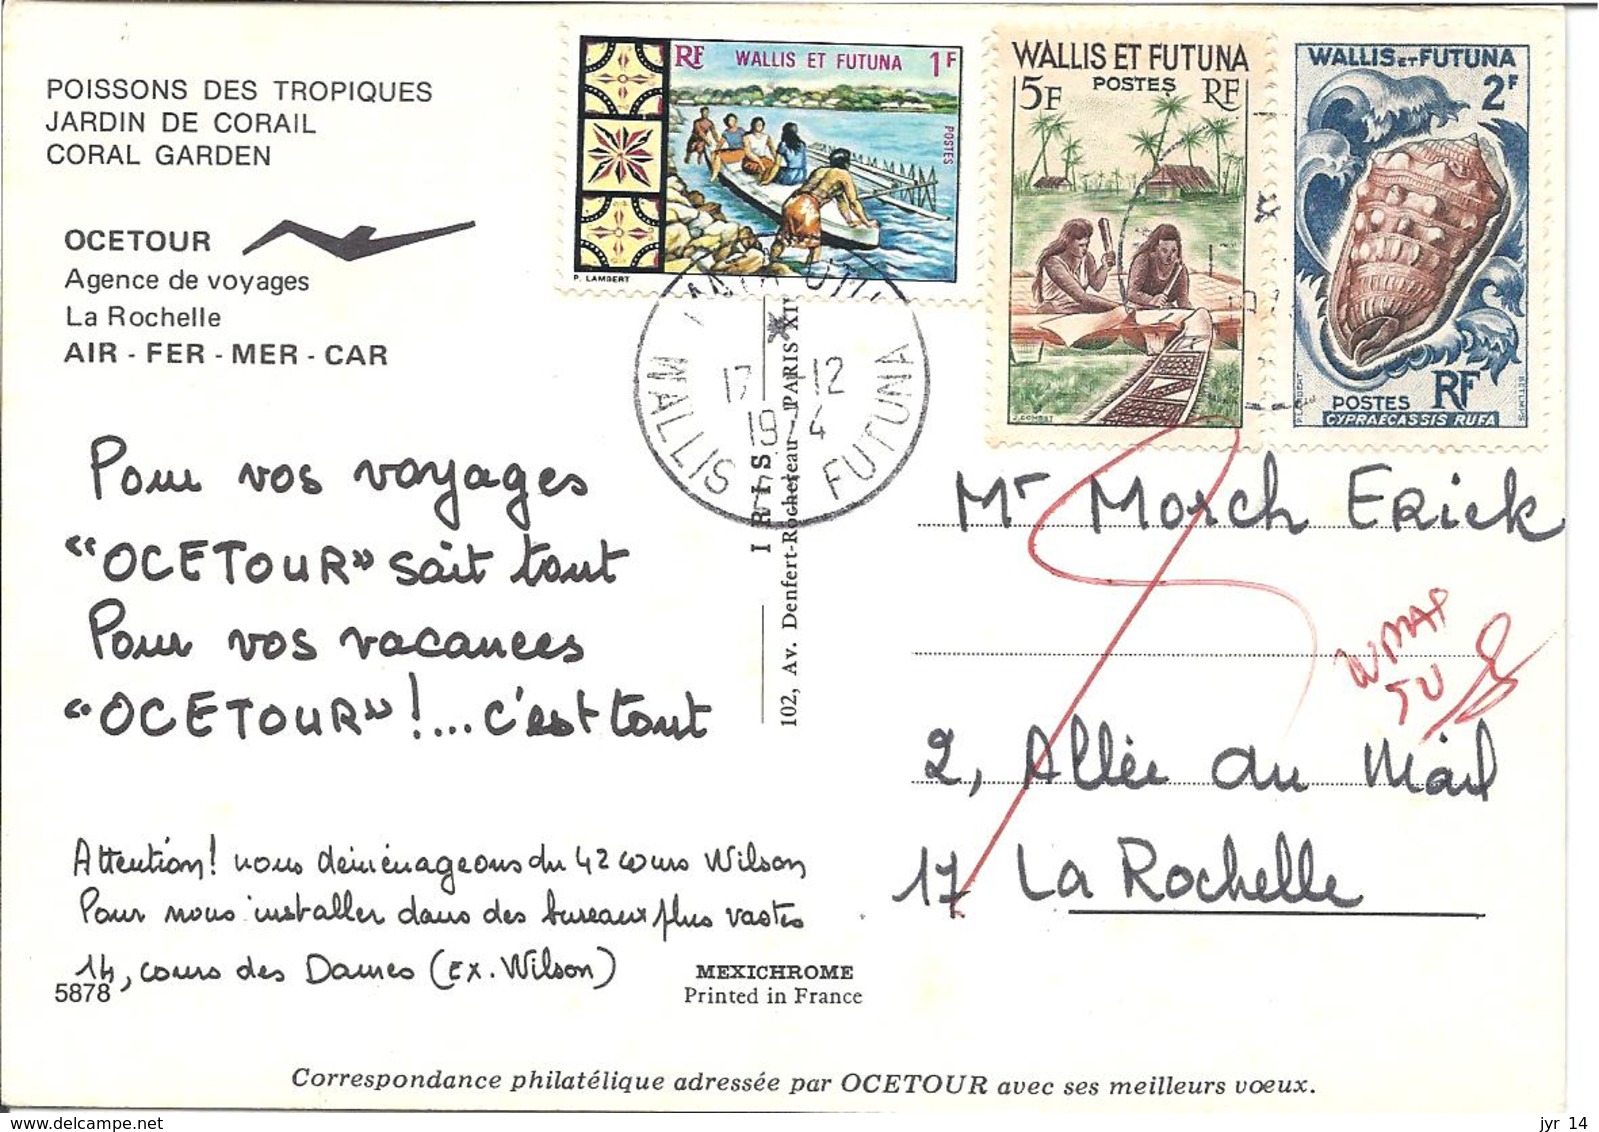 POISSONS DES TROPIQUES
JARDIN DE CORAIL
CORAL GARDEN
OCETOUR
Agence de voyages
La Rochelle
AIR - FER - MER - CAR
RF WALLIS ET FUTUNA 1F
POSTES
P. LAMBERT
WALLIS ET FUTUNA
5F POSTES RF
J. COMBET
WALLIS ET FUTUNA
2F
POSTES RF
CYPRAECASSIS RUFA
17 - 12
1974
WALLIS FUTUNA
Pour vos voyages
"OCETOUR" sait tout
Pour vos vacances
"OCETOUR"!... c'est tout
Attention! nous déménageons du 42 cours Wilson
Pour nous installer dans des bureaux plus vastes
14, cours des Dames (Ex. Wilson)
5878
IRIS
102, Av. Denfert-Rochereau - PARIS XI
MEXICHROME
Printed in France
Mr Morch Erick
2, Allée du Mail
17 La Rochelle
Correspondance philatélique adressée par OCETOUR avec ses meilleurs voeux.
delcampe.net
jyr 14